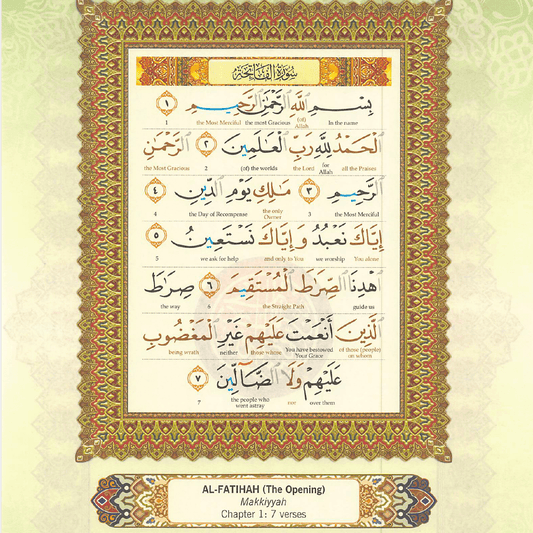 سُورَةُ الْفَاتِحَةِ
بِسْمِ اللَّهِ الرَّحْمَٰنِ الرَّحِيمِ ١
In the name (of) Allah the most Gracious the Most Merciful 1
الْحَمْدُ لِلَّهِ رَبِّ الْعَالَمِينَ ٢ الرَّحْمَٰنِ
all the Praises for Allah the Lord (of) the worlds 2 the Most Gracious
الرَّحِيمِ ٣ مَالِكِ يَوْمِ الدِّينِ ٤
the Most Merciful 3 the only Owner the Day of Recompense 4
إِيَّاكَ نَعْبُدُ وَإِيَّاكَ نَسْتَعِينُ ٥
You alone we worship and only to You we ask for help 5
اهْدِنَا الصِّرَاطَ الْمُسْتَقِيمَ ٦ صِرَاطَ
guide us the Straight Path 6 the way
الَّذِينَ أَنْعَمْتَ عَلَيْهِمْ غَيْرِ الْمَغْضُوبِ
of those (people) on whom You have bestowed Your Grace those whom neither being wrath
عَلَيْهِمْ وَلَا الضَّالِّينَ ٧
over them nor the people who went astray 7
AL-FATIHAH (The Opening)
Makkiyyah
Chapter 1: 7 verses